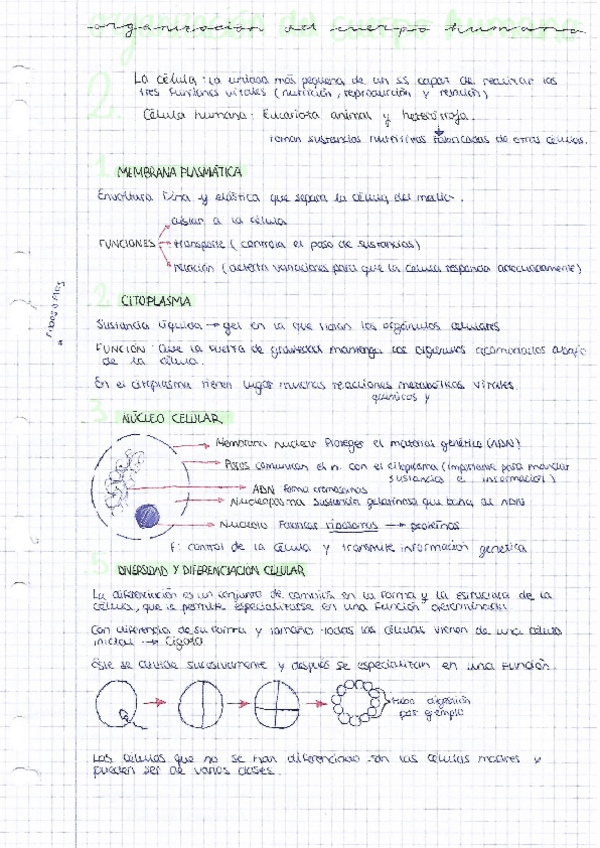 organización del cuerpo humano
2.
La célula: la unidad más pequeña de un ss capaz de realizar las
tres funciones vitales (nutrición, reproducción y relación)
Célula humana: Eucariota animal y heterótrofa.
toman sustancias nutritivas fabricadas de otras células.
1. MEMBRANA PLASMÁTICA
Envoltura fina y elástica que separa la célula del medio.
aislar a la célula
FUNCIONES transporte (controla el paso de sustancias)
relación (detecta variaciones para que la célula responda adecuadamente)
2. CITOPLASMA
Sustancia líquida → gel en la que flotan los orgánulos celulares
FUNCIÓN: Que la fuerza de gravedad mantenga los orgánulos acomodados abajo
de la célula.
En el citoplasma tienen lugar muchas reacciones metabólicas vitales.
químicas y
3. NÚCLEO CELULAR
Membrana nuclear Proteger el material genético (ADN)
Poros comunican el n. con el citoplasma (importante para mandar
sustancias e información)
ADN forma cromosomas
Nucleoplasma Sustancia gelatinosa que baña al ADN
Nucleolo Fabricar ribosomas → proteínas
F: control de la célula y transmite información genética
5. DIVERSIDAD Y DIFERENCIACIÓN CELULAR
La diferenciación es un conjunto de cambios en la forma y la estructura de la
célula, que le permite especializarse en una función determinada
Con diferencia de su forma y tamaño todas las células vienen de una célula
inicial → Cigoto
Este se divide sucesivamente y después se especializan en una función.
tubo digestivo
por ejemplo
Las células que no se han diferenciado son las células madres y
pueden ser de varias clases.